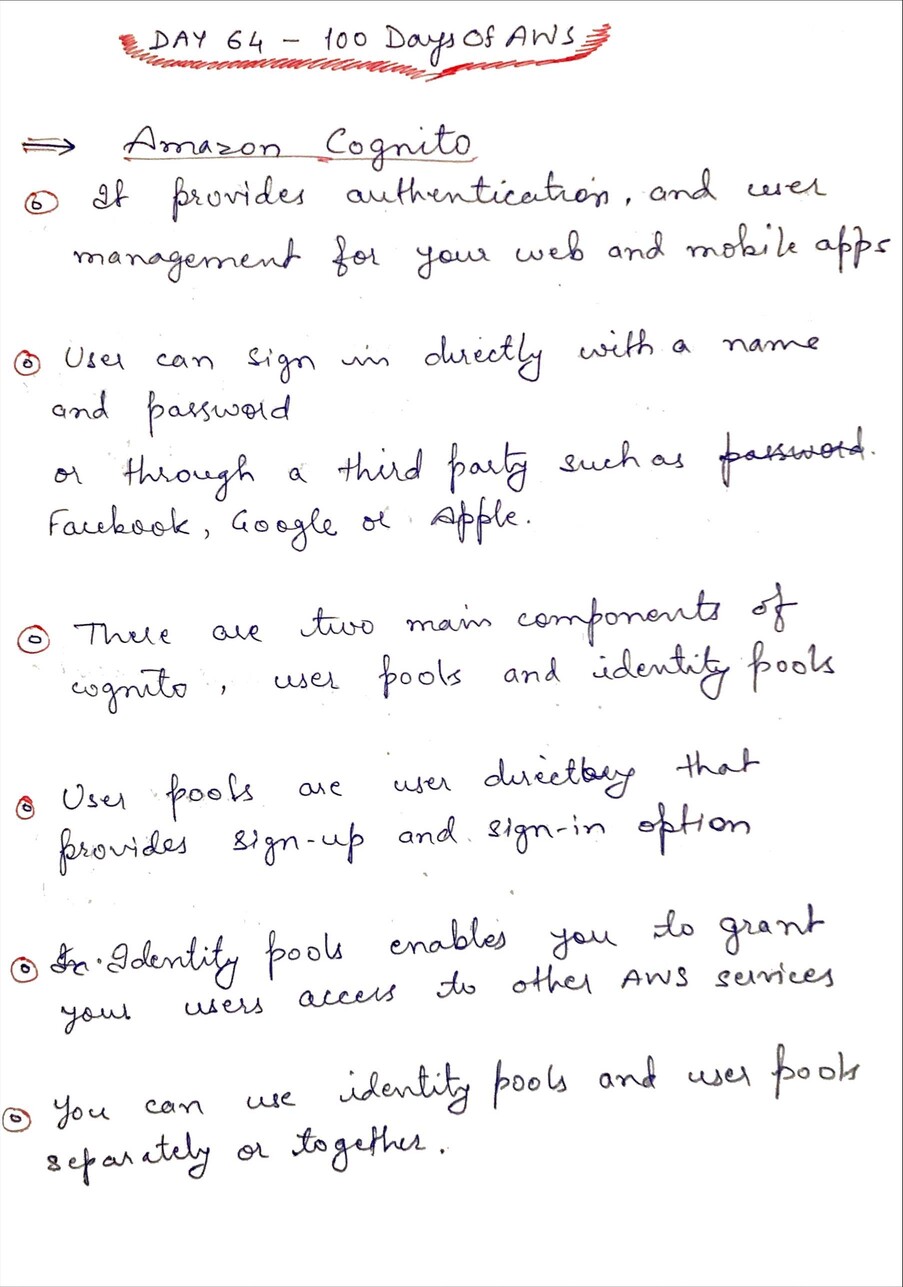 DAY 64 - 100 Days Of AWS
⇒ Amazon Cognito
It provides authentication, and user
management for your web and mobile apps
User can sign in directly with a name
and password
or through a third party such as password.
Facebook, Google or Apple.
There are two main components of
cognito, user pools and identity pools
User pools are user directory that
provides sign-up and sign-in option
In Identity pools enables you to grant
your users access to other AWS services
You can use identity pools and user pools
separately or together.